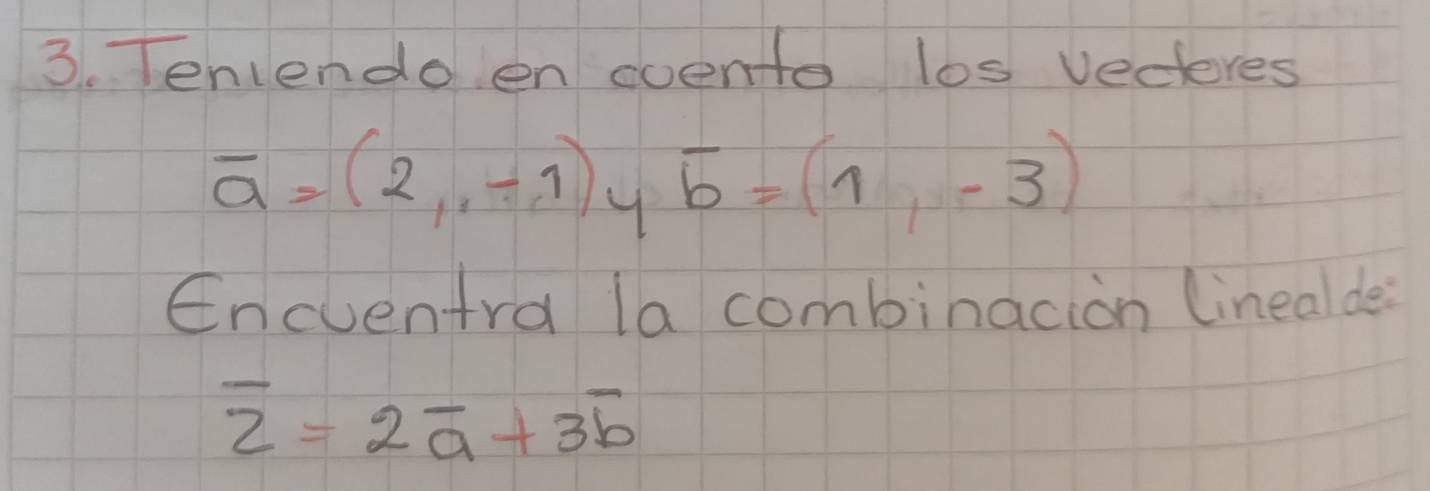 3. Teniendo en cuenta los vectores
a̅ = (2, -1) y b̅ = (1, -3)
Encuentra la combinación lineal de:
z̅ = 2a̅ + 3b̅